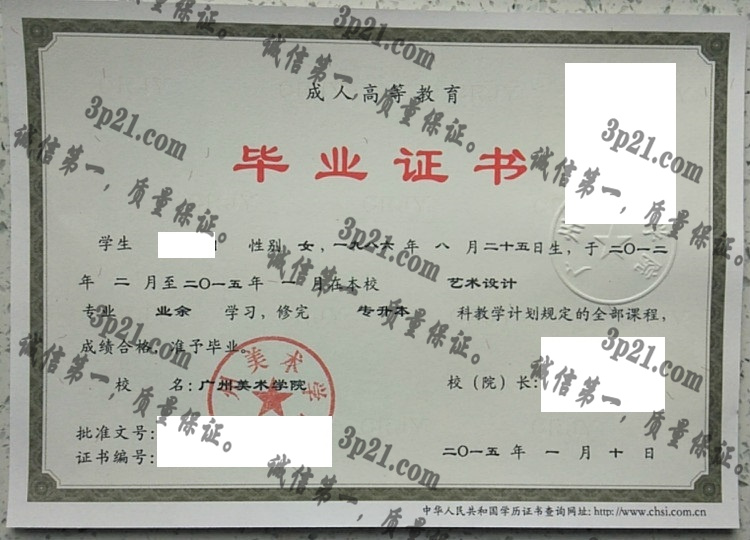 成人高等教育
毕业证书
学生 性别 女，一九八六 年 八 月二十五日生，于 二〇一二
年 二 月至二〇一五年 一 月在本校 艺术设计
专业 业余 学习，修完 专升本 科教学计划规定的全部课程，
成绩合格，准予毕业。
校 名：广州美术学院
校（院）长：
批准文号：
证书编号：
二〇一五 年 一 月 十 日
中华人民共和国学历证书查询网址：http://www.chsi.com.cn
州美术学
3p21.com
诚信第一，质量保证。
3p21.com
诚信第一，质量保证。
3p21.com
诚信第一，质量保证。
3p21.com
诚信第一，质量保证。
3p21.com
诚信第一，质量保证。
3p21.com
诚信第一，质量保证。
3p21.com
诚信第一，质量保证。